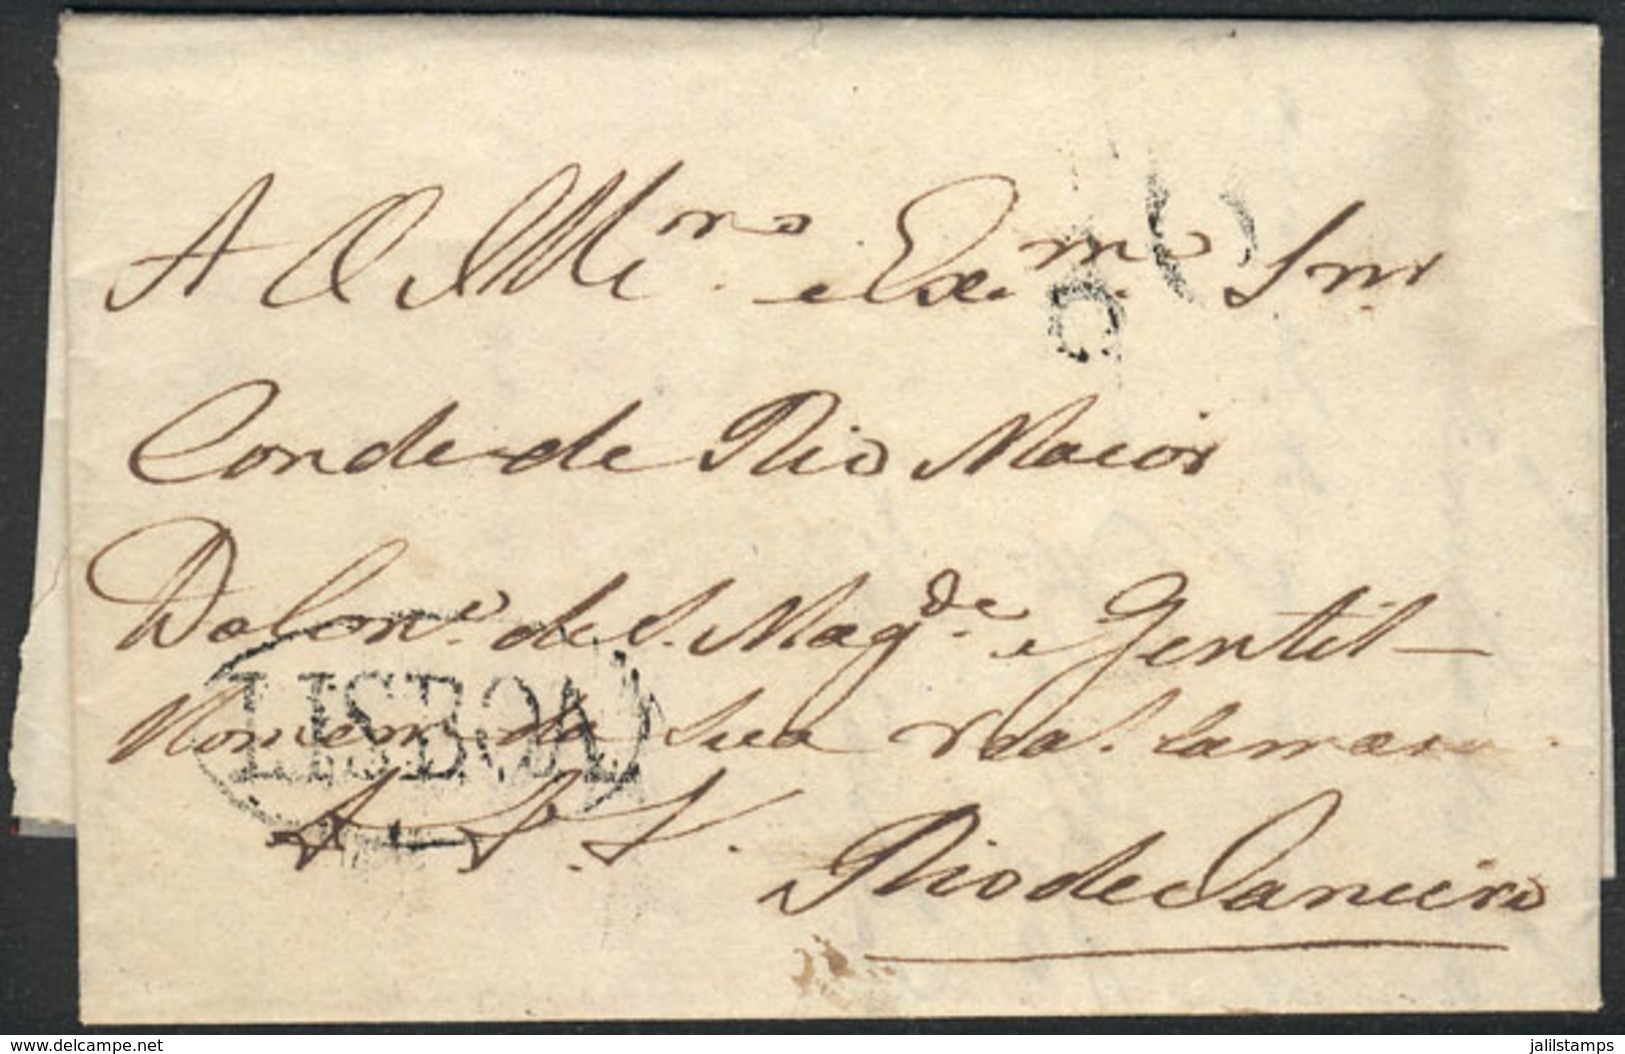 A O Ill.mo e Ex.mo Snr
Conde de Rio Maior
Do Con.o de S. Mag.de e Gentil-
Homem da Sua Real Camara
LISBOA
Rio de Janeiro
www.delcampe.net
jalilstamps